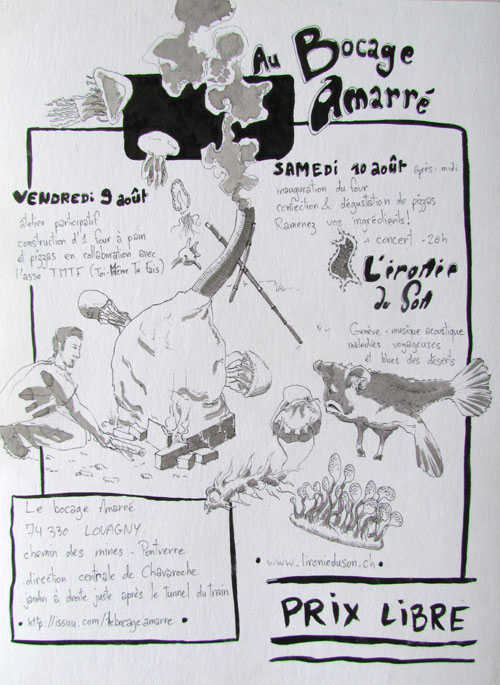 Au Bocage
Amarré
VENDREDI 9 août
atelier participatif
construction d'1 four à pain
et pizzas en collaboration avec
l'asso TMTF (Toi-Même Tu Fais)
SAMEDI 10 août après-midi
inauguration du four
confection & dégustation de pizzas
Ramenez vos ingrédients!
+ concert - 20h
L'ironie
du Son
Genève - musique acoustique
mélodies voyageuses
et blues des déserts
Le bocage Amarré
74 330 LOVAGNY
chemin des mines - Pontverre
direction centrale de Chavaroche
jardin à droite juste après le tunnel du train
• http://issuu.com/lebocageamarre •
• www.lironieduson.ch •
PRIX LIBRE